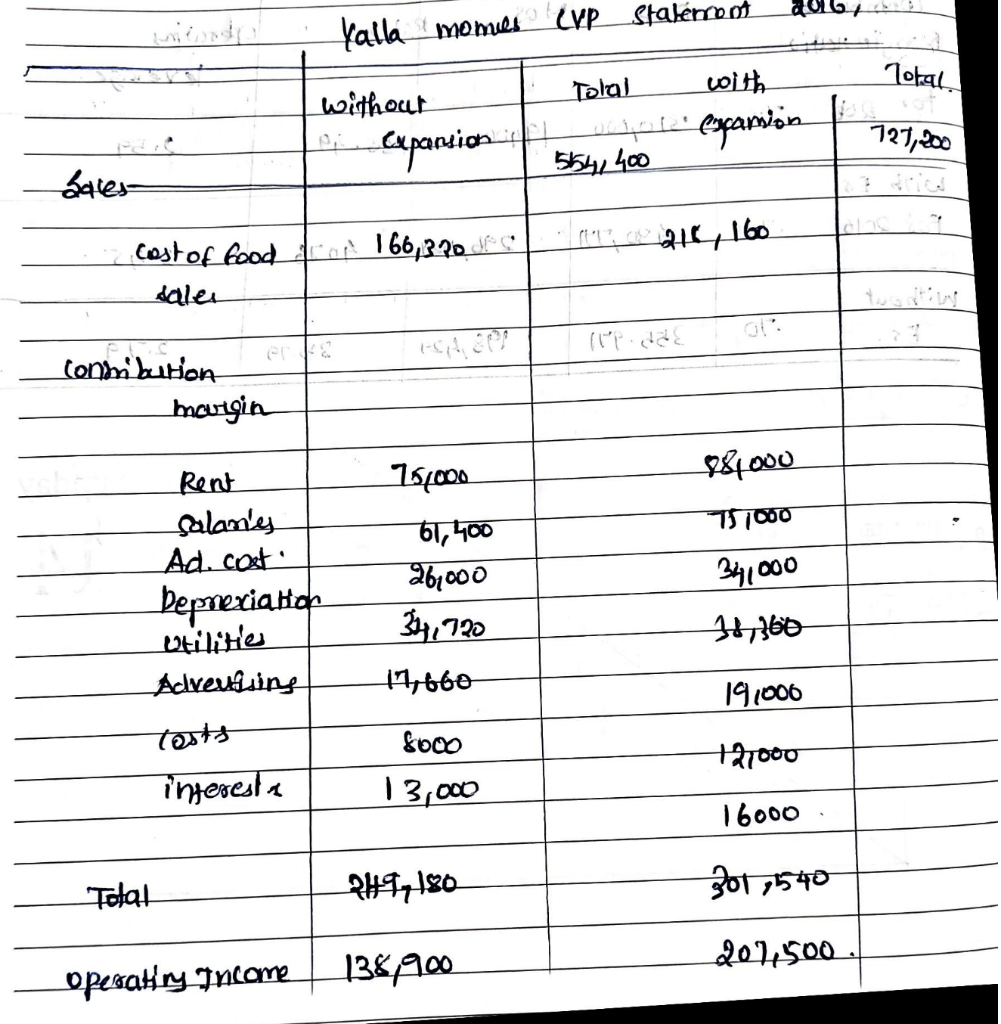 Yalla momies CVP Statement 2016,
without expansion Total with expansion Total
Sales 554,400 727,200
Cost of food sales 166,320 218,160
Contribution margin
Rent 75,000 88,000
Salaries 61,400 75,000
Ad. cost. 26,000 34,000
Depreexiation
utilities 34,720 38,360
Advertising 17,660 19,000
costs 8000 12,000
interest 13,000 16000
Total 249,180 301,540
operating Income 138,900 207,500.